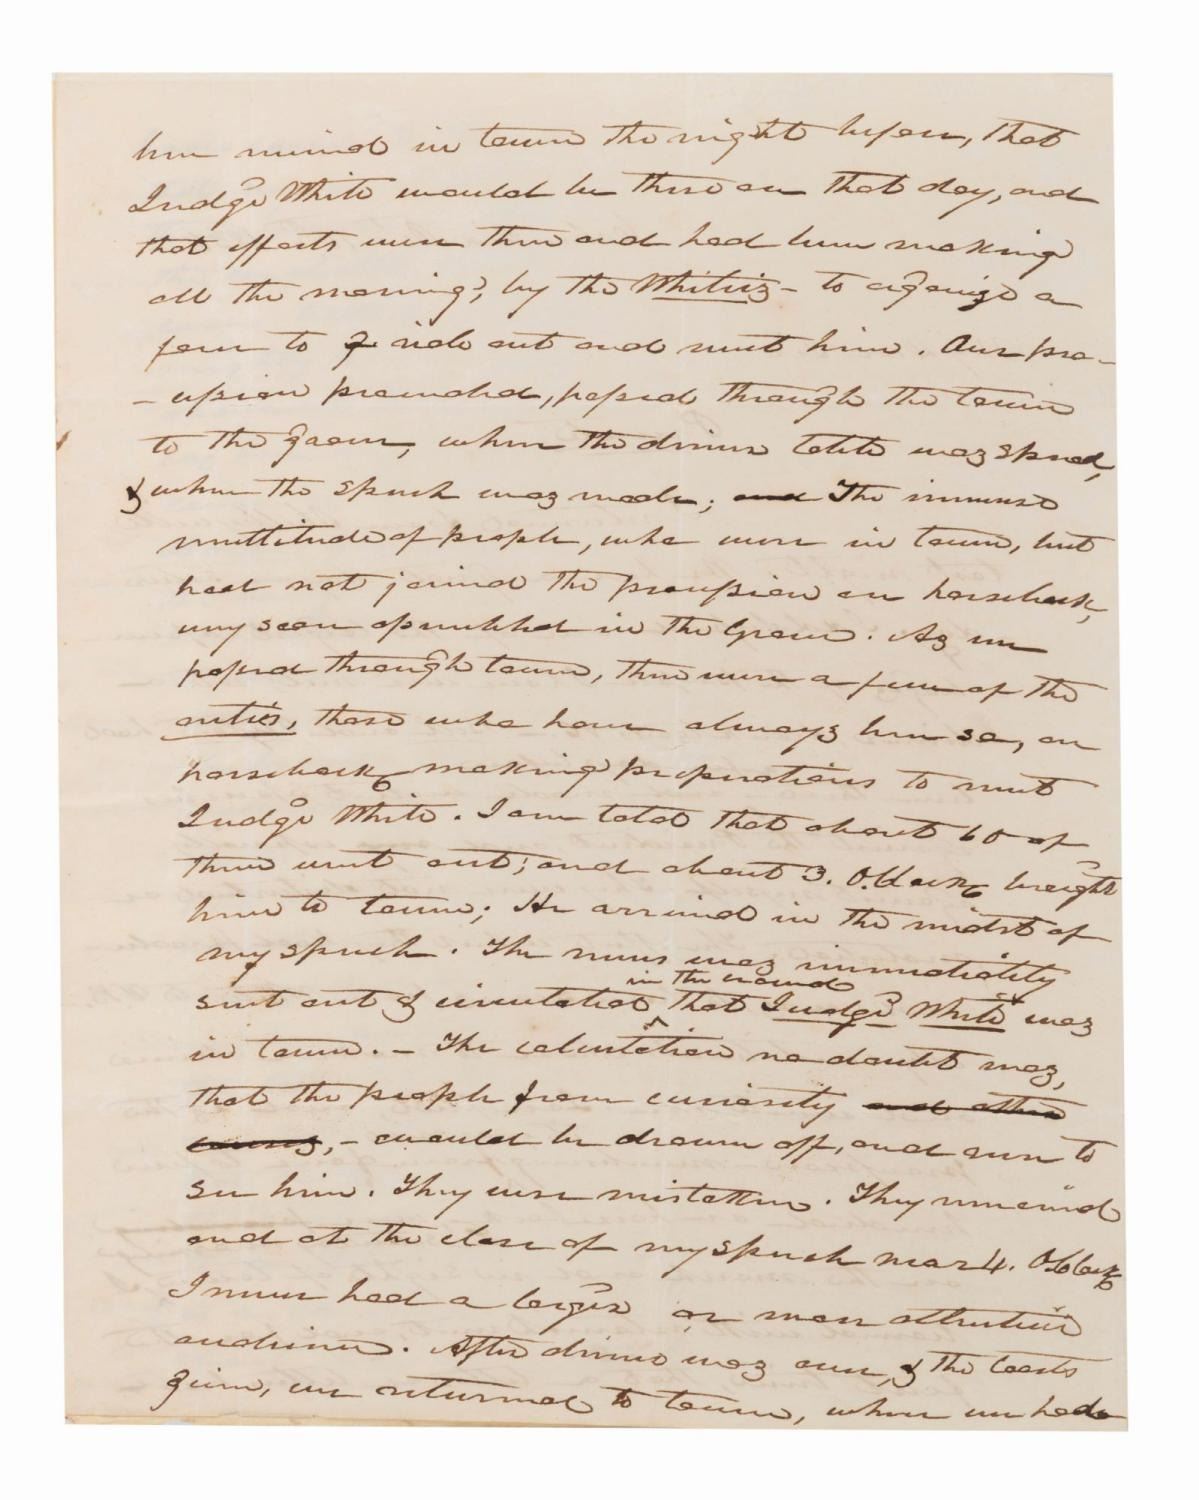 been received in town the night before, that
Judge White would be there on that day, and
that efforts were then and had been making
all the morning, by the Whiteis - to organize a
few to ride out and meet him. Our pro-
-cession proceeded, passed through the town
to the grove, where the dinner table was spread,
& where the speech was made; and The immense
multitude of people, who were in town, but
had not joined the procession on horseback,
very soon assembled in the Grove. As we
passed through town, there were a few of the
anties, those who have always been so, on
horseback making preparations to meet
Judge White. I am told that about 60 of
them went out; and about 3. O.Clock brought
him to town; He arrived in the midst of
my speech. The news was immediately
in the crowd
sent out & circulated that Judge White was
in town. - The calculation no doubt was,
that the people from curiosity and other
causes, - would be drawn off, and run to
see him. They were mistaken. They remained
and at the close of my speech near 4. O.Clock
I never had a larger or more attentive
audience. After dinner was over, & the toasts
given, we returned to town, where we had